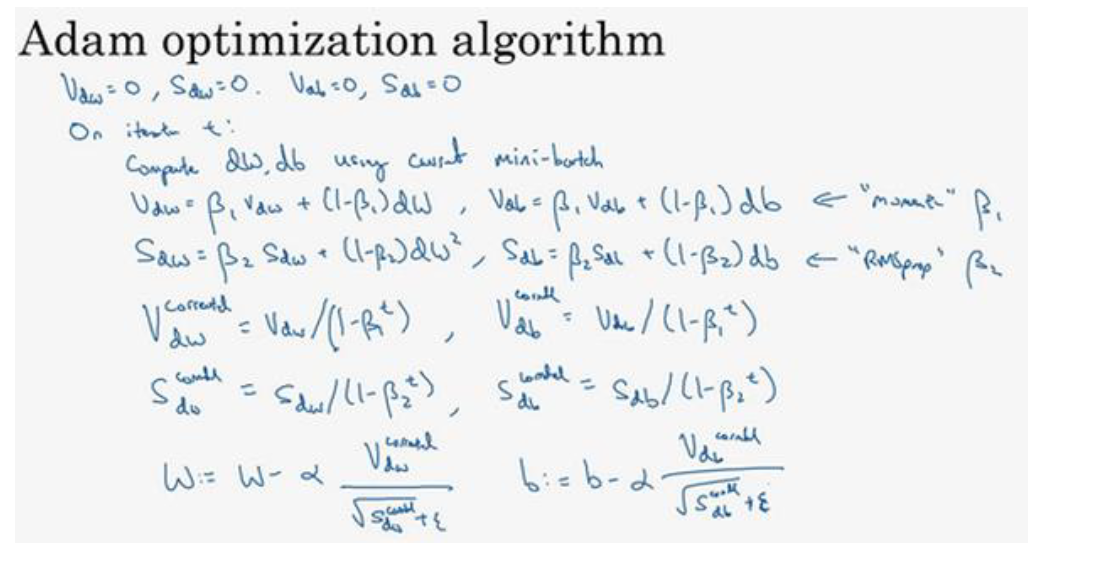 Adam optimization algorithm
V_dw = 0, S_dw = 0. V_db = 0, S_db = 0
On iteration t:
Compute dW, db using current mini-batch
V_dw = β₁ V_dw + (1-β₁)dW, V_db = β₁ V_db + (1-β₁)db ← "moment" β₁
S_dw = β₂ S_dw + (1-β₂)dW², S_db = β₂ S_db + (1-β₂)db ← "RMSprop" β₂
V_dw^corrected = V_dw/(1-β₁^t), V_db^corrected = V_db/(1-β₁^t)
S_dw^corrected = S_dw/(1-β₂^t), S_db^corrected = S_db/(1-β₂^t)
W := W - α V_dw^corrected / (√S_dw^corrected + ε) b := b - α V_db^corrected / (√S_db^corrected + ε)